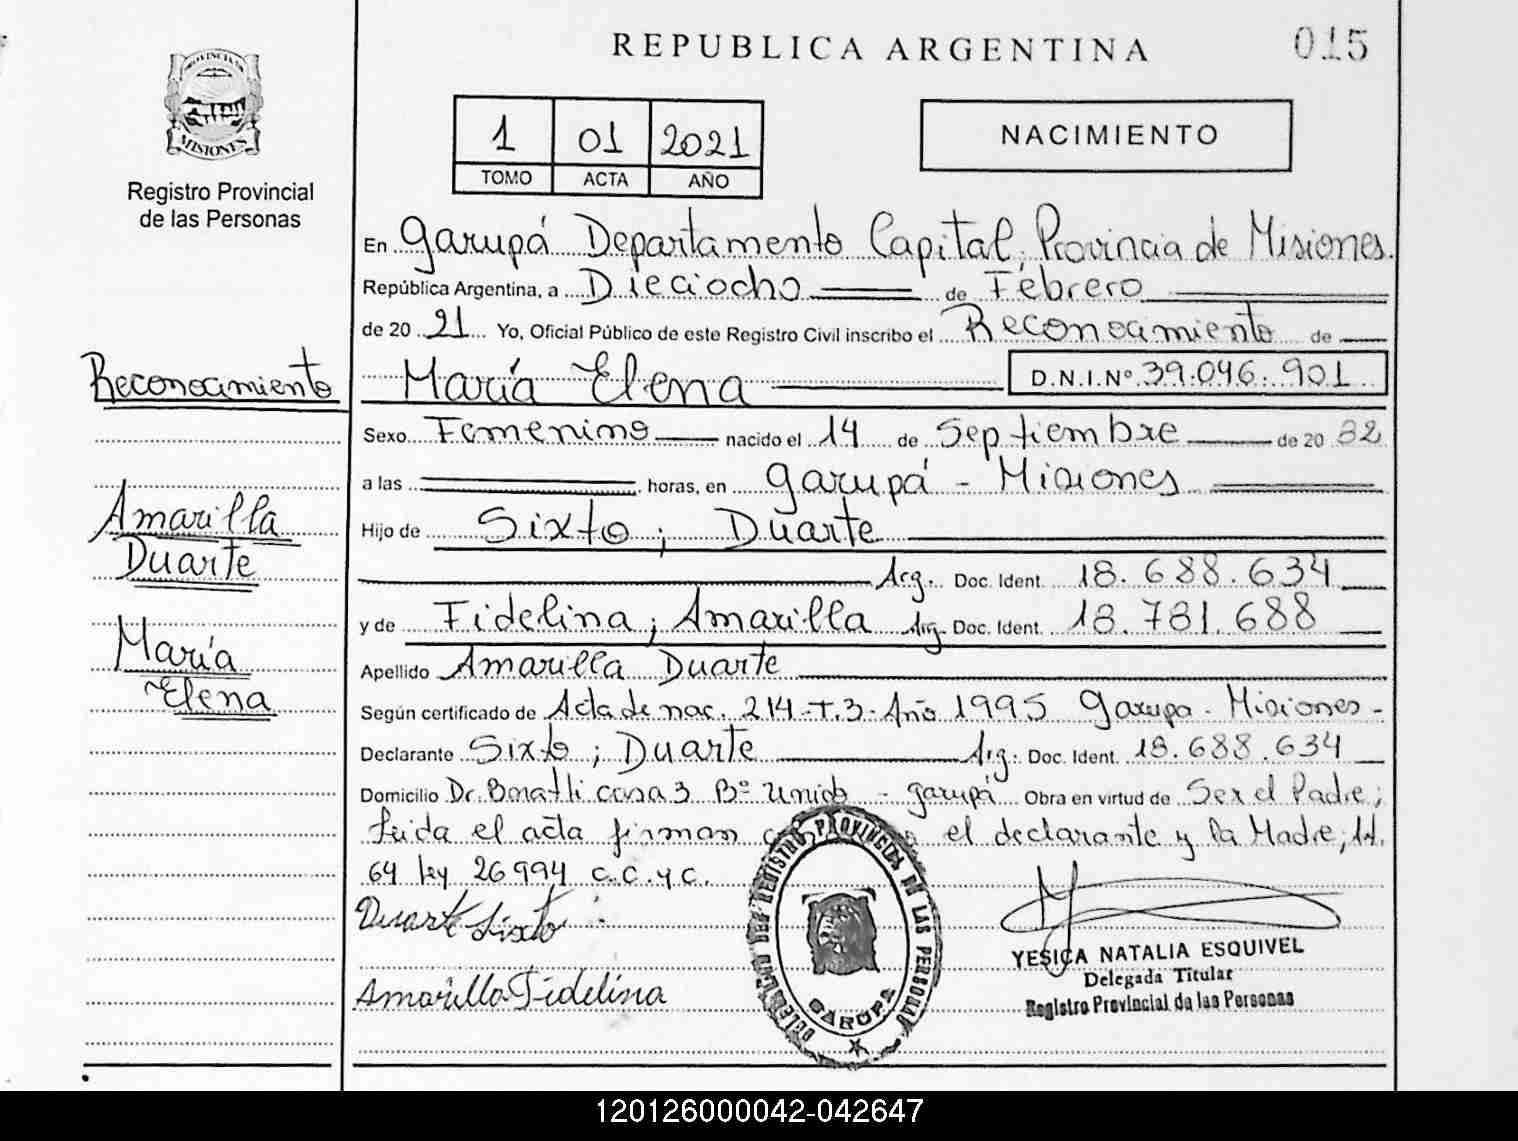 REPUBLICA ARGENTINA
015
PROVINCIA DE
MISIONES
Registro Provincial
de las Personas
1 01 2021
TOMO ACTA AÑO
NACIMIENTO
En Garupá Departamento Capital, Provincia de Misiones.
República Argentina, a Dieciocho de Febrero
de 20 21 Yo, Oficial Público de este Registro Civil inscribo el Reconocimiento de
María Elena D.N.I.Nº 39.046.901
Sexo Femenino nacido el 14 de Septiembre de 20
a las horas, en Garupá - Misiones
Hijo de Sixto ; Duarte
Arg. Doc. Ident. 18.688.634
y de Fidelina ; Amarilla Arg. Doc. Ident. 18.781.688
Apellido Amarilla Duarte
Según certificado de Acta de nac. 214-T.3-Año 1995 Garupa - Misiones -
Declarante Sixto ; Duarte Arg. Doc. Ident. 18.688.634
Domicilio Dr. casa 3 Bº - Garupá Obra en virtud de Ser el Padre;
leida el acta firman el declarante y la Madre;
64 ley 26994 c.c.y c.
Duarte Sixto
Amarilla Fidelina
Reconocimiento
Amarilla
Duarte
María
Elena
DELEGACIÓN DEL REGISTRO PROVINCIAL DE LAS PERSONAS
GARUPA
YESICA NATALIA ESQUIVEL
Delegada Titular
Registro Provincial de las Personas
120126000042-042647